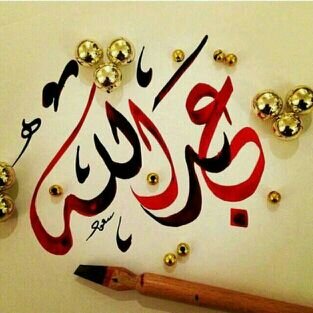 عبدالله